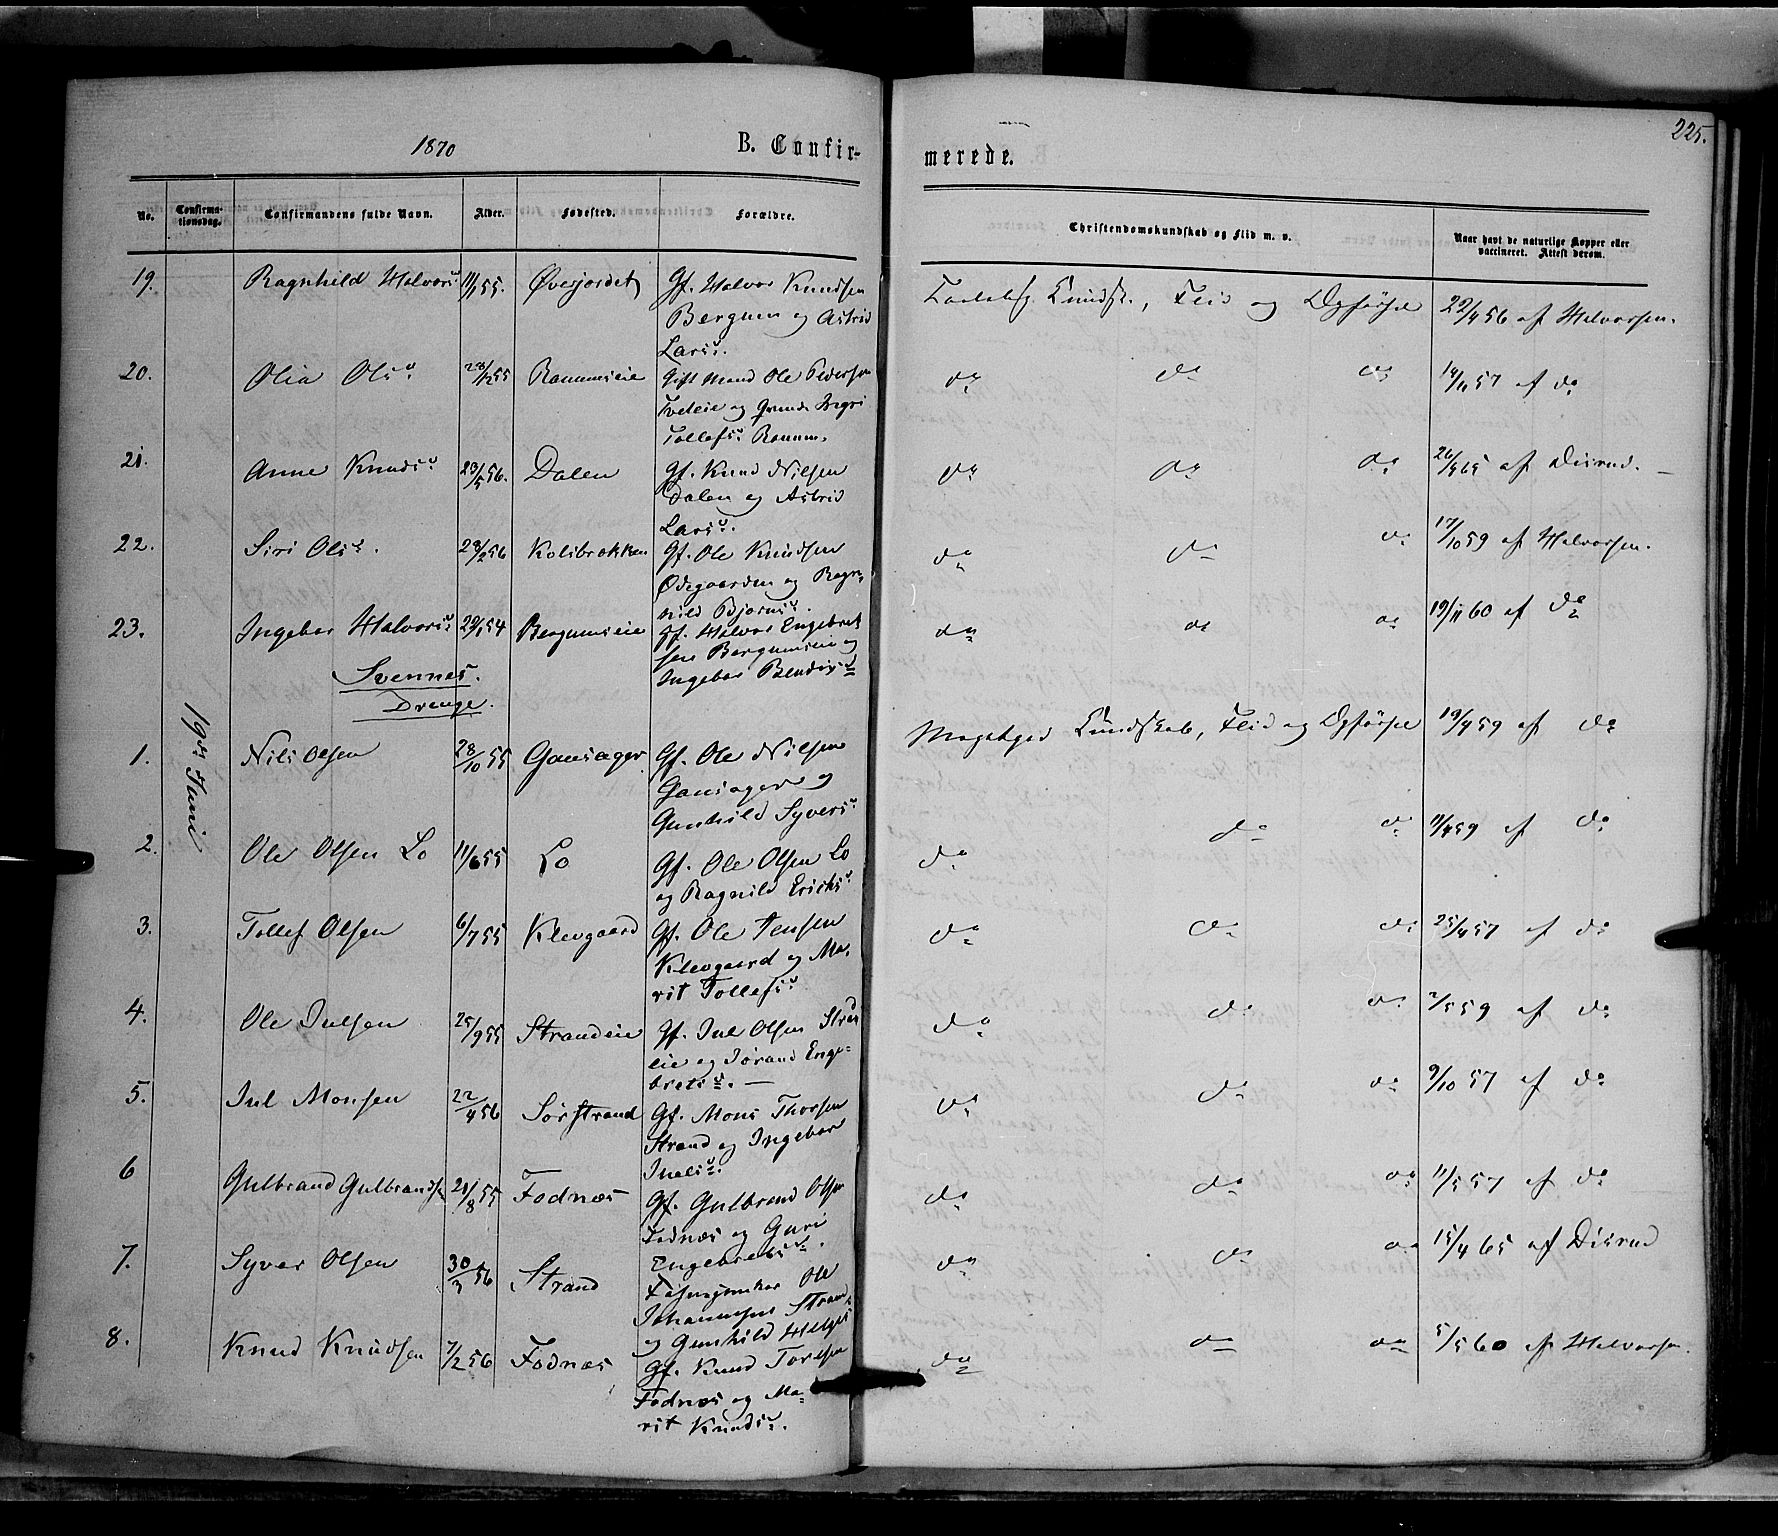 225.
1870 B. Confir-
merede.
No. Confirma-
tionsdag. Confirmandens fulde Navn. Alder. Fødested. Forældre.
Christendomskundskab og Flid m. v. Naar havt de naturlige Kopper eller
vaccineret. Attest derom.
19. Ragnhild Halvors: 11/1 55. Øvejordet Gf. Halvor Knudsen
Bergum og Astrid
Lars:.
Kundsk., Flid og Opførsel 22/4 56 af Halvorsen.
20. Olia Ols: 28/12 55 Ranumseie Gift Mand Ole Pedersen
Tveleie og Ingri
Tollefs: Ranum.
do do do 14/6 57 af do
21. Anne Knuds: 23/5 56. Dalen Gf. Knud Nilsen
Dalen og Astrid
Lars:.
do do do 26/4 65 af Disrud. —
22. Siri Ols:. 23/2 56 Kolibrokken Gf. Ole Knudsen
Ødegaarden og Ragn-
hild Bjørns:.
do do do 17/10 59 af Halvorsen.
23. Ingebor Halvors: 29/1 54 Bergumseie Gf. Halvor Engebret
sen Bergumseie og
Ingebor Bendis:
do do do 19/11 60 af do
Svennes.
Drenge.
19de Juni
1. Nils Olsen 28/10 55 Gausager Gf. Ole Nilsen
Gausager og
Gunhild Syvers:
Meget god Kundskab, Flid og Opførsel 19/4 59 af do
2. Ole Olsen Lo 11/6 55 Lo Gf. Ole Olsen Lo
og Ragnild Ericks:
do do do 11/4 59 af do
3. Tollef Olsen 6/7 55 Klevgaard Gf. Ole Jensen
Klevgaard og Ma-
rit Tollefs:
do do do 25/4 57 af do
4. Ole Julsen 25/9 55 Strandeie Gf. Jul Olsen Strand
eie og Jørand Enge-
brets:. —
do do do 7/5 59 af do
5. Jul Monsen 22/4 56 Sørstrand Gf. Mons Thorsen
Strand og Ingebor
Juels:.
do do do 9/10 57 af do
6 Gulbrand Gulbrandsen 21/8 55 Fodnæs Gf. Gulbrand Olsen
Fodnæs og Guri
Engebrets:.
do do do 11/5 57 af do
7. Syver Olsen 30/3 56 Strand Ole
Johannesen Strand
og Gunhild Helges:
do do do 15/4 65 af Disrud
8. Knud Knudsen 7/2 56 Fodnæs Gf. Knud Toresen
Fodnæs og Ma-
rit Knuds:.
do do do 5/5 60 af Halvorsen.